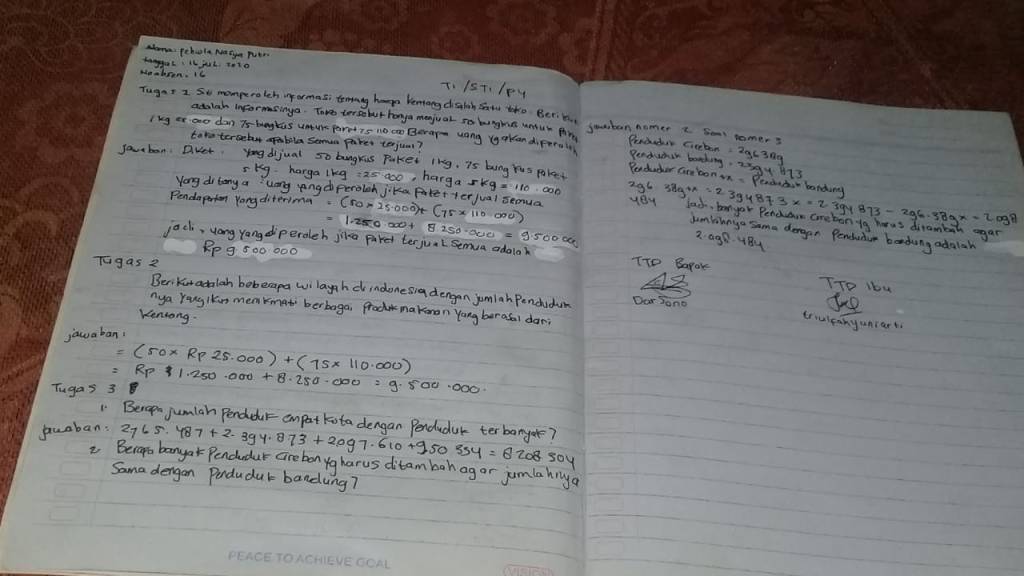 Nama: Pekula Nasya Putri
tanggal: 16 juli 2020
No absen: 16
T1/ST1/P4
Tugas 1 Siti memperoleh informasi tentang harga kentang disalah satu toko. Berikut
adalah informasinya. Toko tersebut hanya menjual 50 bungkus untuk
1 kg 25.000 dan 75 bungkus untuk 110.000 Berapa uang yg akan diperoleh
toko tersebut apabila semua Paket terjual?
Jawaban: Diket: yang dijual 50 bungkus Paket 1kg, 75 bungkus paket
5 kg. harga 1kg = 25.000, harga 5kg = 110.000
Yang ditanya: uang yang diperoleh jika Paket terjual semua
Pendapatan yang diterima = (50 x 25.000) + (75 x 110.000)
= 1.250.000 + 8.250.000 = 9.500.000
jadi, yang diperoleh jika paket terjual semua adalah
Rp 9.500.000
Tugas 2
Berikut adalah beberapa wilayah di indonesia, dengan jumlah Penduduk
nya yang ikut menikmati berbagai Produk makanan yang berasal dari
Kentang.
jawaban:
= (50 x Rp 25.000) + (75 x 110.000)
= Rp 1.250.000 + 8.250.000 = 9.500.000.
Tugas 3
1. Berapa jumlah Penduduk empat kota dengan Penduduk terbanyak?
jawaban: 2765.487 + 2.394.873 + 2097.610 + 950.334 = 8208304
2 Berapa banyak Penduduk Cirebon yg harus ditambah agar jumlahnya
Sama dengan Penduduk bandung?
jawaban nomer 2 Soal nomer 3
Penduduk Cirebon = 296389
Penduduk bandung = 2394873
Penduduk Cirebon + x = Penduduk bandung
296.389 + x = 2394873 x = 2.394873 - 296.389 x = 2.098
484 Jadi, banyak Penduduk Cirebon yg harus ditambah agar
jumlahnya sama dengan Penduduk bandung adalah
2.098.484
TTD Bapak
Darsono
TTD Ibu
PEACE TO ACHIEVE GOAL
VISION